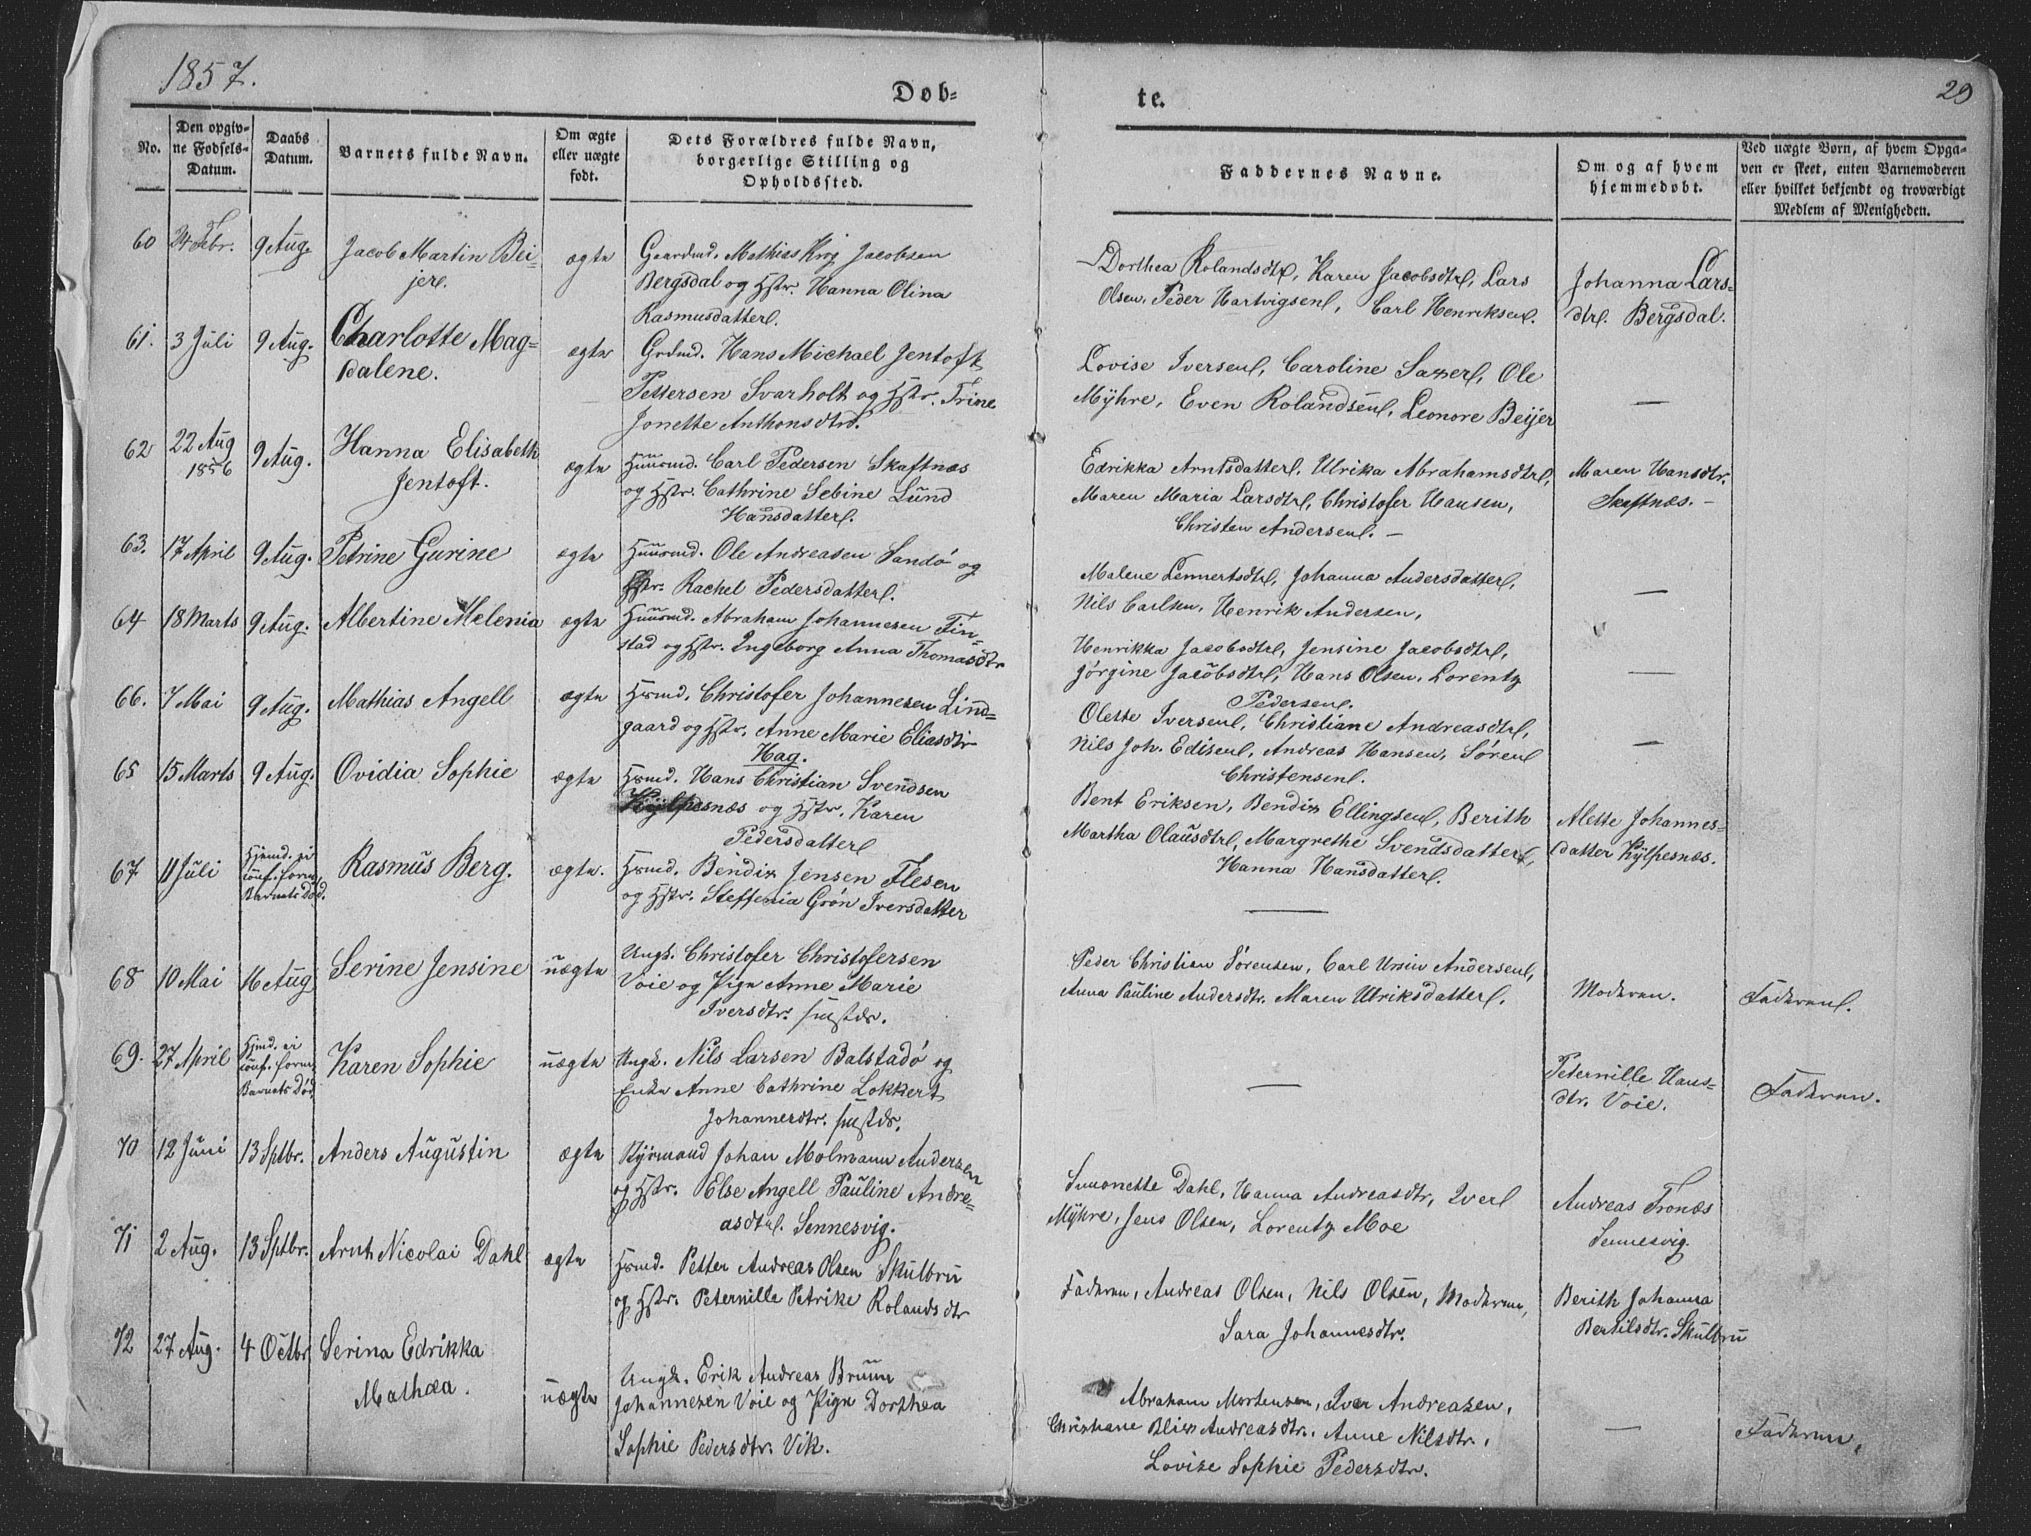 1857.
Døb-
te.
29
No.
Den opgiv-
ne Fødsels-
Datum.
Daabs
Datum.
Barnets fulde Navn.
Om ægte
eller uægte
født.
Dets Forældres fulde Navn,
borgerlige Stilling og
Opholdssted.
Faddernes Navne.
Om og af hvem
hjemmedøbt.
Ved uægte Børn, af hvem Opga-
ven er skeet, enten Barnemoderen
eller hvilket bekjendt og troværdigt
Medlem af Menigheden.
60
24 Febr.
9 Aug.
Jacob Martin Bei-
jer.
ægte
Gaardmd. Mathias Krog Jacobsen
Bergsdal og Hstr. Hanna Olina
Rasmusdatter.
Dorthea Rolandsdtr, Karen Jacobsdtr, Lars
Olsen, Peder Hartvigsen, Carl Henriksen.
Johanna Lars-
dtr. Bergsdal.
61.
3 Juli
9 Aug.
Charlotte Mag-
dalene.
ægte
Grdmd. Hans Michael Jentoft
Pettersen Svarholt og Hstr. Trine
Jonette Anthonsdtr.
Lovise Iversen, Caroline Saxer, Ole
Myhre, Even Rolandsen, Leonore Beijer
—
62
22 Aug
1856
9 Aug.
Hanna Elisabeth
Jentoft.
ægte
Huusmd. Carl Pedersen Skaftnæs
og Hstr. Cathrine Sebine Lund
Hansdatter.
Edrikka Arntsdatter, Ulrika Abrahamsdtr,
Maren Maria Larsdtr, Christofer Hansen,
Christen Andersen. —
Maren Hansdtr.
Skaftnæs. —
63.
17 April
9 Aug.
Petrine Gurine
ægte
Huusmd. Ole Andreasen Sandø og
Hstr. Rachel Pedersdatter.
Malene Lennertsdtr, Johanna Andersdatter,
Nils Carlsen, Henrik Andersen,
—
64
18 Marts
9 Aug.
Albertine Melenia
ægte
Huusmd. Abraham Johannesen Fin-
stad og Hstr. Ingeborg Anna Thomasdtr
Henrikka Jacobsdtr, Jensine Jacobsdtr,
Jørgine Jacobsdtr, Hans Olsen, Lorentz
Pedersen.
—
66.
7 Mai
9 Aug.
Mathias Angell
ægte
Hsmd. Christofer Johannesen Lind-
gaard og Hstr. Anne Marie Eliasdtr
Olette Iversen, Christiane Andreasdtr,
Nils Joh. Edisen, Andreas Hansen, Søren
Christensen.
—
65
15 Marts
9 Aug.
Ovidia Sophie
ægte
Hag.
Hsmd. Hans Christian Svendsen
Kylpesnæs og Hstr. Karen
Pedersdatter
Bent Eriksen, Bendix Ellingsen, Berith
Martha Olausdtr, Margrethe Svendsdatter,
Hanna Hansdatter.
Alette Johannes-
datter Kylpesnæs.
67
11 Juli
Hjemd. ei
conf. form.
Barnets Død.
Rasmus Berg.
ægte.
Hsmd. Bendix Jensen Flesen
og Hstr. Steffenia Grøn Iversdatter
—
68
10 Mai
16 Aug
Serine Jensine
uægte
Ungk. Christofer Christofersen
Voie og Pige Anne Marie
Iversdtr.
Peder Christian Sørensen, Carl Ursin Andersen,
Anna Pauline Andersdtr. Maren Ulriksdatter.
Moderen.
Faderen.
69.
27 April
Hjmd. ei
conf. form.
Barnets Død
Karen Sophie
uægte
Ungk. Nils Larsen Balstadø og
Enke Anne Cathrine Lokkert
Johannesdtr.
—
Peternille Hans-
dtr. Voie.
Faderen.
70
12 Juni
13 Sptbr.
Anders Augustin
ægte
Styrmand Johan Molmann Andersen
og Hstr. Else Angell Pauline Andre-
asdtr. Sennesvig.
Simonette Dahl, Hanna Andreasdtr, Iver
Myhre, Jens Olsen, Lorentz Moe
Andreas Fronæs
Sennesvig.
71
2 Aug.
13 Sptbr.
Arnt Nicolai Dahl
ægte
Hsmd. Petter Andreas Olsen Skulbru
og Hstr. Peternille Petrike Rolandsdtr
Faderen, Andreas Olsen, Nils Olsen, Moderen,
Sara Johannesdtr.
Berith Johanna
Bertilsdtr. Skulbru
72
27 Aug.
4 Octbr
Serina Edrikka
Mathea.
uægte
Ungk. Erik Andreas Bruun
Johannesen Voie og Pige Dorthea
Sophie Pedersdtr. Vik.
Abraham Mortensen, Iver Andreasen,
Christiane Blix Andreasdtr. Anne Nilsdtr.
Lovise Sophie Pedersdtr.
—
Faderen.